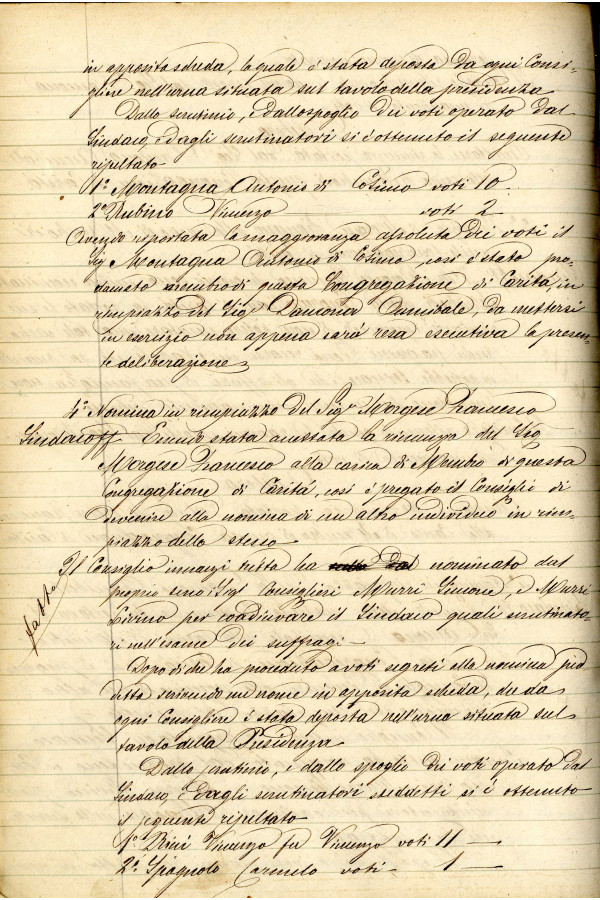 in apposita scheda, la quale è stata deposta da ogni Consi-
gliere nell'urna situata sul tavolo della presidenza
Dallo scrutinio, e dallo spoglio dei voti operato dal
Sindaco, e dagli scrutinatori si è ottenuto il seguente
risultato
1º Montagna Antonio di Cosimo voti 10
2º Rubino Vincenzo voti 2
Avendo riportata la maggioranza assoluta dei voti il
Sig Montagna Antonio di Cosimo, così è stato pro-
clamato membro di questa Congregazione di Carità, in
rimpiazzo del Sigr Annibale, da mettersi
in esercizio non appena sarà resa esecutiva la presen-
te deliberazione
4º Nomina in rimpiazzo del Sigr Morgese Francesco
Sindaco ff Essendo stata accettata la rinunzia del Sig
Morgese Francesco alla carica di Membro di questa
Congregazione di Carità, così è pregato il Consiglio di
devenire alla nomina di un altro individuo in rim-
piazzo dello stesso
Il Consiglio innanzi tutto ha nominato dal
fatto
proprio seno i Sigi Consiglieri Murri Simone, e Murri
Livino per coadiuvare il Sindaco quali scrutinato-
ri nell'esame dei suffragi
Dopo di che ha proceduto a voti segreti alla nomina pre
detta scrivendo un nome in apposita scheda, che da
ogni Consigliere è stata deposta nell'urna situata sul
tavolo della Presidenza
Dallo scrutinio, e dallo spoglio dei voti operato dal
Sindaco, e dagli scrutinatori suddetti si è ottenuto
il seguente risultato
1º Bini Vincenzo fu Vincenzo voti 11
2º Spagnolo Carmelo voti 1